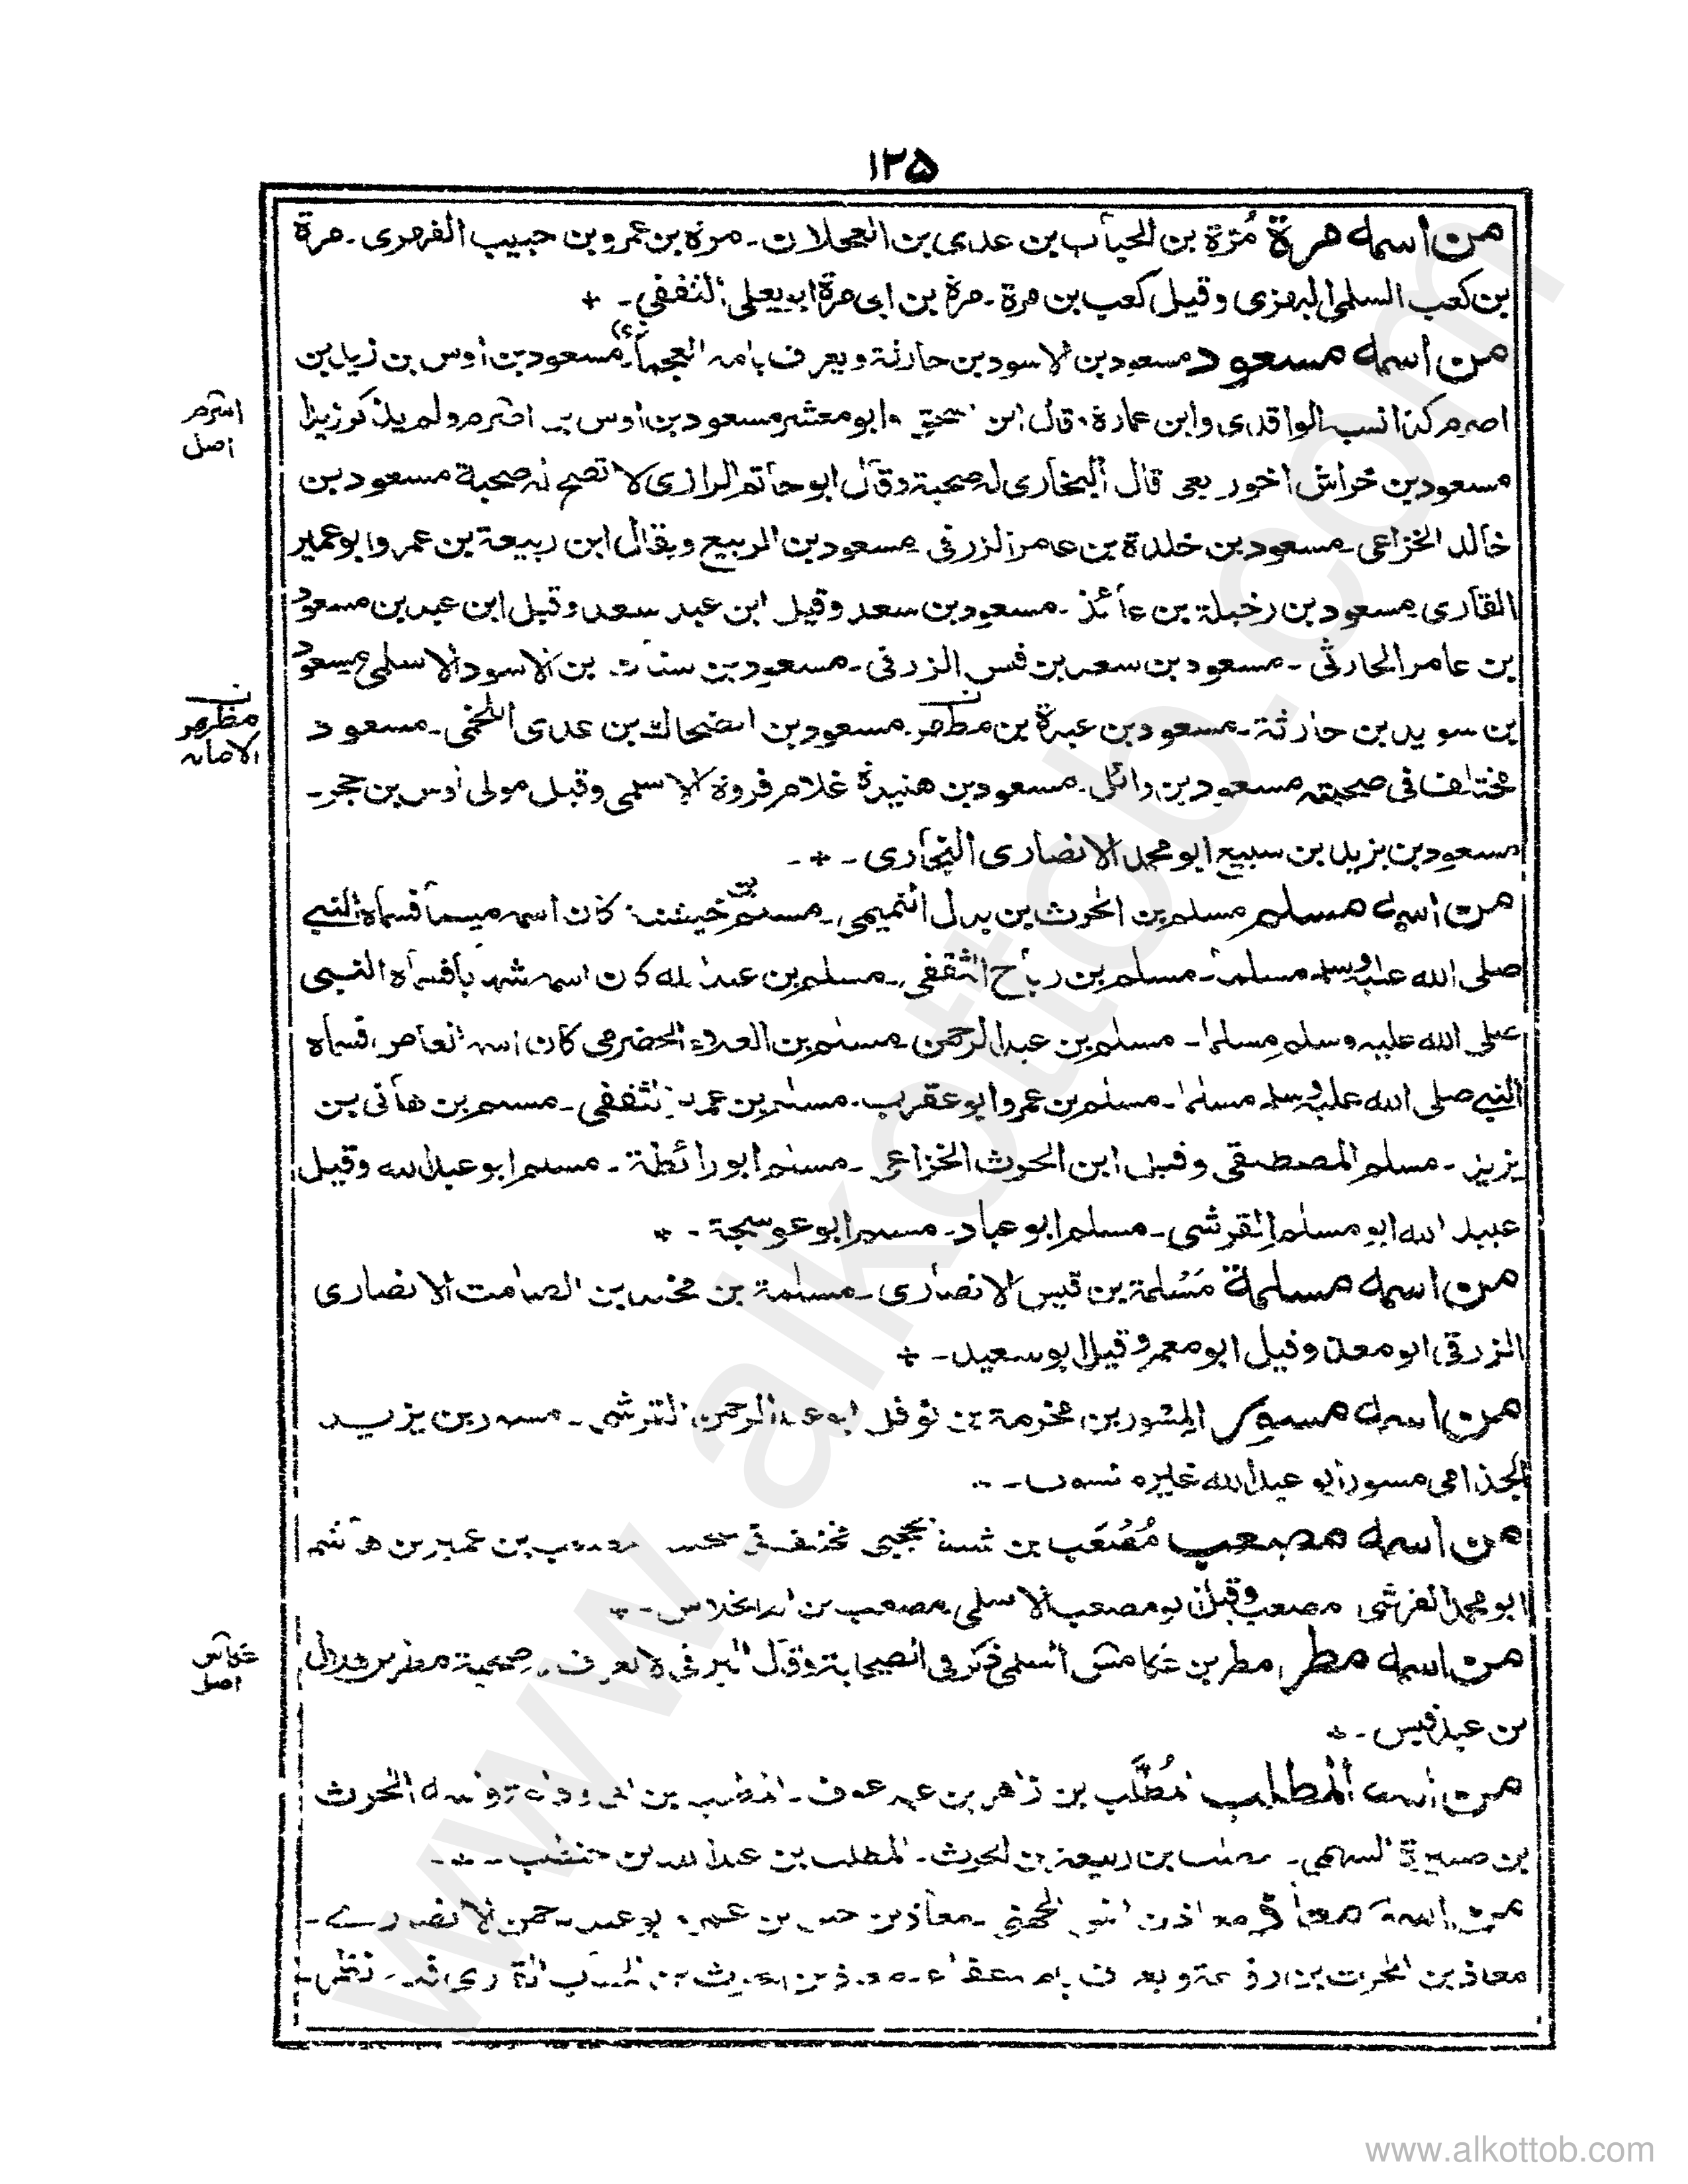 ١٢٥
من اسمه مرة مُرّة بن الحباب بن عدي بن العجلان ـ مرة بن عمرو بن حبيب الفهري ـ مرة
بن كعب السلمي البهزي وقيل كعب بن مرة ـ مرة بن ابي مرة ابو يعلى الثقفي ـ *
من اسمه مسعود مسعود بن الاسود بن حارثة ويعرف بامه العجماء ـ مسعود بن اوس بن زيد بن
اصرم كذا نسبه الواقدي وابن عمارة ، قال ابن وابو معشر مسعود بن اوس اصرم ولم يذكر زيدا
مسعود بن خراش اخو ربعي قال البخاري له صحبة وقال ابو حاتم الرازي لا تصح له صحبة مسعود بن
خالد الخزاعي ـ مسعود بن خلدة بن عامر الزرقي مسعود بن الربيع ويقال ابن ربيعة بن عمرو ابو عمير
القاري مسعود بن رخيلة بن عائذ ـ مسعود بن سعد وقيل ابن عبد سعد وقيل ابن عبد بن مسعود
بن عامر الحارثي ـ مسعود بن سعد بن قيس الزرقي ـ مسعود بن سنان بن الاسود الاسلمي مسعود
بن سويد بن حارثة ـ مسعود بن عبدة بن مظهر مسعود بن الضحاك بن عدي اللخمي ـ مسعود
مختلف في صحبته مسعود بن وائل ـ مسعود بن هنيدة غلام فروة الاسلمي وقيل مولى اوس بن حجر ـ
مسعود بن يزيد بن سبيع ابو محمد الانصاري النجاري ـ * ـ
من اسمه مسلم مسلم بن الحرث بن بدل التميمي ـ مسلم خيشنة كان اسمه ميسما فسماه النبي
صلى الله عليه وسلم مسلما ـ مسلم بن رباح الثقفي ـ مسلم بن عبد الله كان اسمه شهابا فسماه النبي
صلى الله عليه وسلم مسلما ـ مسلم بن عبد الرحمن مسلم بن العلاء الحضرمي كان اسمه العاص فسماه
النبي صلى الله عليه وسلم مسلما ـ مسلم بن عمرو ابو عقرب ـ مسلم بن عمير الثقفي ـ مسلم بن هانئ بن
يزيد ـ مسلم المصطلقي وقيل ابن الحرث الخزاعي ـ مسلم ابو رائطة ـ مسلم ابو عبد الله وقيل
عبيد الله ابو مسلم القرشي ـ مسلم ابو عباد ـ مسلم ابو عوسجة ـ *
من اسمه مسلمة مَسْلمة بن قيس الانصاري ـ مسلمة بن مخلد بن الصامت الانصاري
الزرقي ابو معن وقيل ابو معمر وقيل ابو سعيد ـ *
من اسمه مسور المسور بن مخرمة بن نوفل ابو عبد الرحمن القرشي ـ مسور بن يزيد
الجذامي مسور ابو عبد الله غيره منسوب ـ
من اسمه مصعب مُصْعَب بن مصعب بن عمير بن هاشم
ابو محمد القرشي مصعب وقيل ابو مصعب الاسلمي مصعب بن ام الجلاس ـ *
من اسمه مطر مطر بن عكامس السلمي ذكر في الصحابة وقال البرقي لا تعرف له صحبة مطر بن هلال
بن عبد قيس ـ *
من اسمه المطلب المُطَّلِب بن ازهر بن عبد عوف ـ المطلب بن ابي وداعة واسمه الحرث
بن صبيرة السهمي ـ مطلب بن ربيعة بن الحرث ـ المطلب بن عبد الله بن حنطب ـ * ـ
من اسمه معاذ معاذ بن انس الجهني ـ معاذ بن جبل بن عمرو ابو عبد الرحمن الانصاري ـ
معاذ بن الحرث بن رفاعة ويعرف بابن عفراء ـ معاذ بن الحرث بن القاري
اصرم
اصل
ن
مظهر
الاصابه
عكامس
اصل
www.alkottob.com
www.alkottob.com